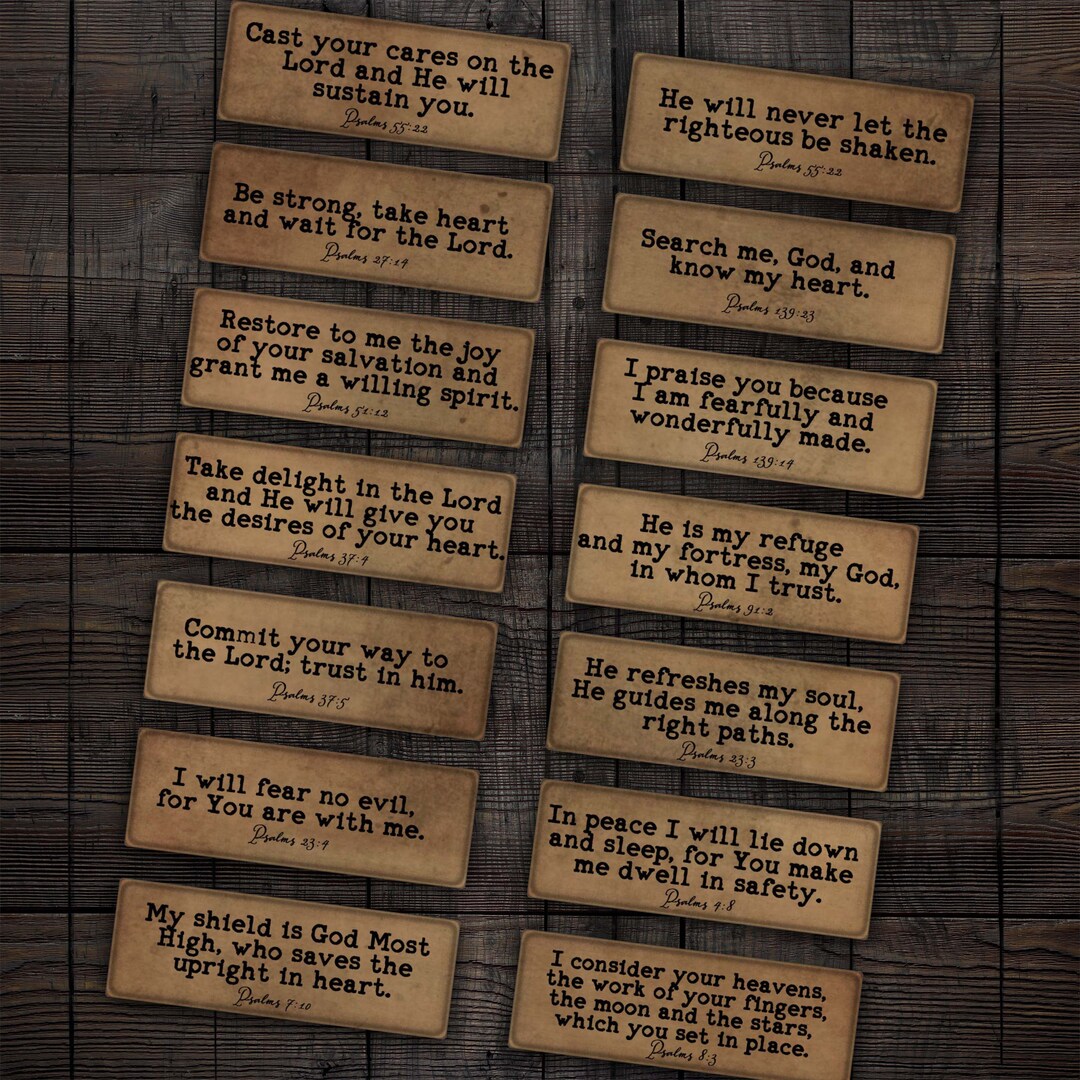 Cast your cares on the
Lord and He will
sustain you.
Psalms 55:22
Be strong, take heart
and wait for the Lord.
Psalms 27:14
Restore to me the joy
of your salvation and
grant me a willing spirit.
Psalms 51:12
Take delight in the Lord
and He will give you
the desires of your heart.
Psalms 37:4
Commit your way to
the Lord; trust in him.
Psalms 37:5
I will fear no evil,
for You are with me.
Psalms 23:4
My shield is God Most
High, who saves the
upright in heart.
Psalms 7:10
He will never let the
righteous be shaken.
Psalms 55:22
Search me, God, and
know my heart.
Psalms 139:23
I praise you because
I am fearfully and
wonderfully made.
Psalms 139:14
He is my refuge
and my fortress, my God,
in whom I trust.
Psalms 91:2
He refreshes my soul,
He guides me along the
right paths.
Psalms 23:3
In peace I will lie down
and sleep, for You make
me dwell in safety.
Psalms 4:8
I consider your heavens,
the work of your fingers,
the moon and the stars,
which you set in place.
Psalms 8:3